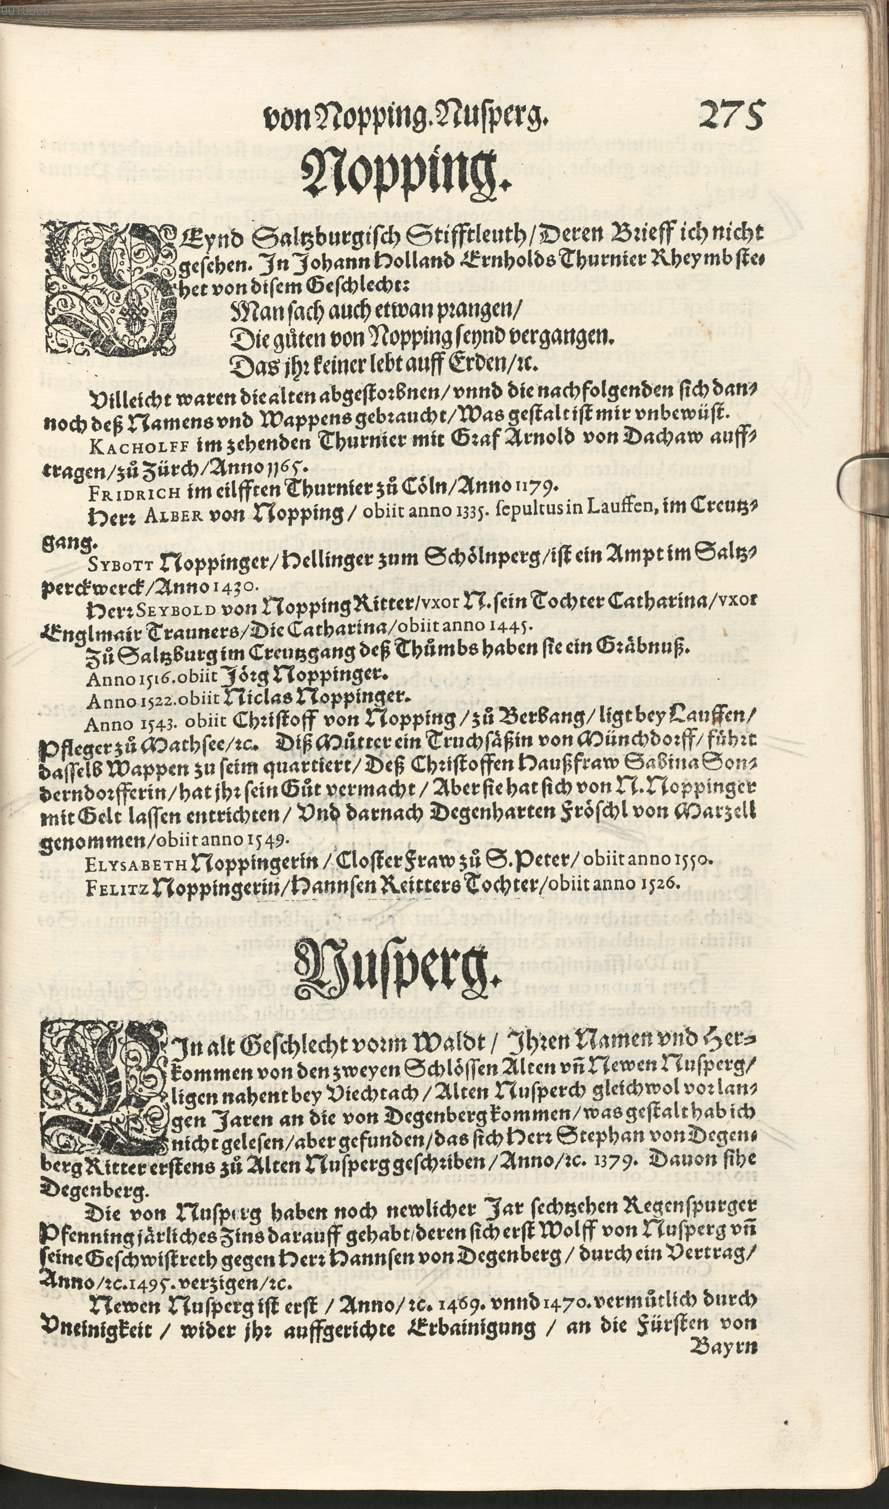 von Nopping. Nusperg. 275
Nopping.
SEynd Saltzburgisch Stifftleuth/Deren Brieff ich nicht
gesehen. In Johann Holland Ernholds Thurnier Rheymb ste-
het von disem Geschlecht:
Man sach auch etwan prangen/
Die gůten von Nopping seynd vergangen.
Das jhr keiner lebt auff Erden/ꝛc.
Villeicht waren die alten abgestorbnen/vnnd die nachfolgenden sich dan-
noch deß Namens vnd Wappens gebraucht/Was gestalt ist mir vnbewüst.
KACHOLFF im zehenden Thurnier mit Graf Arnold von Dachaw auff-
tragen/zů Zürch/Anno 1165.
FRIDRICH im eilfften Thurnier zů Cöln/Anno 1179.
Herr ALBER von Nopping / obiit anno 1335. sepultus in Lauffen, im Creutz-
gang.
SYBOTT Noppinger/Hellinger zum Schölnperg/ist ein Ampt im Saltz-
perckwerck/Anno 1430.
Herr SEYBOLD von Nopping Ritter/vxor N. sein Tochter Catharina/vxor
Englmair Trauners/Die Catharina/obiit anno 1445.
Zů Saltzburg im Creutzgang deß Thůmbs haben sie ein Gräbnuß.
Anno 1516. obiit Jörg Noppinger.
Anno 1522. obiit Niclas Noppinger.
Anno 1543. obiit Christoff von Nopping / zů Berbang/ ligt bey Lauffen/
Pfleger zů Mathsee/ꝛc. Diß Můtter ein Truchsäßin von Münchdorff/ führt
dasselb Wappen zu seim quartiert/Deß Christoffen Haußfraw Sabina Son-
derndorfferin/hat jhr sein Gůt vermacht / Aber sie hat sich von N. Noppinger
mit Gelt lassen entrichten/ Vnd darnach Degenharten Fröschl von Marzell
genommen/obiit anno 1549.
ELYSABETH Noppingerin / Closter Fraw zů S. Peter/ obiit anno 1550.
FELITZ Noppingerin/Hannsen Reitters Tochter/obiit anno 1526.
Nusperg.
EIn alt Geschlecht vorm Waldt / Ihren Namen vnd Her-
kommen von den zweyen Schlössen Alten vñ Newen Nusperg/
ligen nahent bey Viechtach / Alten Nusperch gleichwol vor lan-
gen Jaren an die von Degenberg kommen/was gestalt hab ich
nicht gelesen/aber gefunden/das sich Herr Stephan von Degen-
berg Ritter erstens zů Alten Nusperg geschriben/Anno/ꝛc. 1379. Dauon sihe
Degenberg.
Die von Nusperg haben noch newlicher Jar sechtzehen Regenspurger
Pfenning järliches Zins darauff gehabt/deren sich erst Wolff von Nusperg vñ
seine Geschwistreth gegen Herr Hannsen von Degenberg / durch ein Vertrag/
Anno/ꝛc. 1495. verzigen/ꝛc.
Newen Nusperg ist erst / Anno/ꝛc. 1469. vnnd 1470. vermůtlich durch
Vneinigkeit / wider jhr auffgerichte Erbainigung / an die Fürsten von
Bayrn